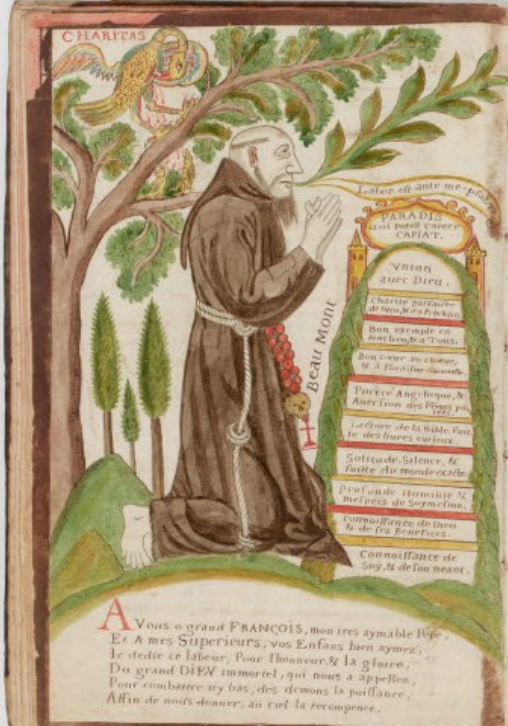 CHARITAS
Labor est ante me
PARADIS
qui potest capere
CAPIAT.
Vnion
avec Dieu.
Charité parfaitte
de Dieu, & du Prochain
Bon exemple en
tout lieu, & a Tous.
Bon cœur au chœur,
& à l'oraison
Pureté Angelique, &
Auersion des
Lecture de la Bible, fuit
te des liures curieux.
Solitude, Silence, &
fuitte du monde exacte.
Profonde Humilité &
mespris de Soymesme.
Connoissance de Dieu
& de ses Benefices.
Connoissance de
Soy, & de son neant.
BEAU MONT
A Vous o grand FRANÇOIS, mon tres aymable Pere,
Et A mes Superieurs, vos Enfans bien aymez,
Ie dedie ce labeur, Pour l'honneur & la gloire,
Du grand DIEV immortel, qui nous a appellez,
Pour combattre icy bas, des demons la puissance,
Affin de nous donner, au ciel la recompence.